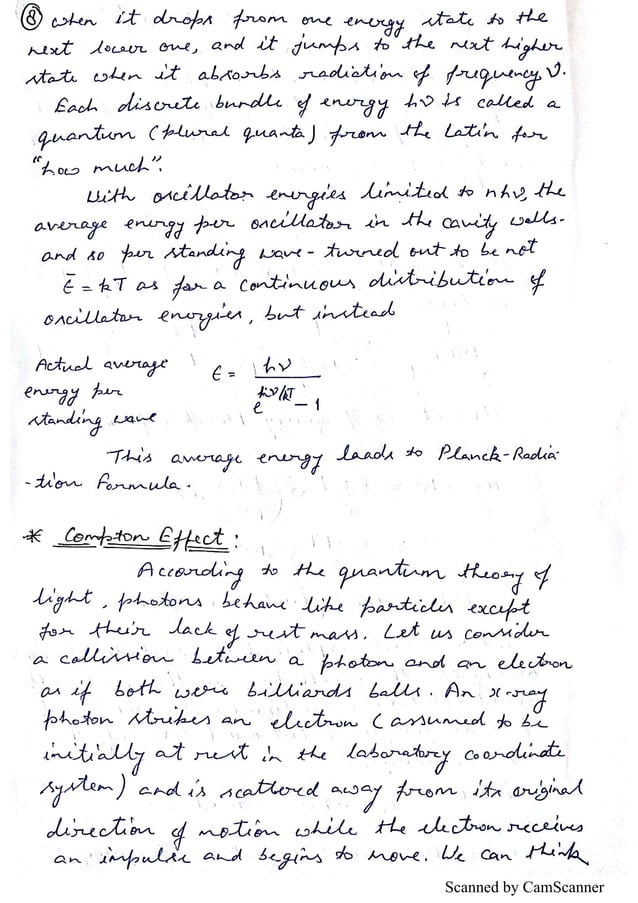 ⑧ when it drops from one energy state to the
next lower one, and it jumps to the next higher
state when it absorbs radiation of frequency ν.
Each discrete bundle of energy hν is called a
quantum (plural quanta) from the Latin for
"how much".
With oscillator energies limited to nhν, the
average energy per oscillator in the cavity walls-
and so per standing wave - turned out to be not
Ē = kT as for a continuous distribution of
oscillator energies, but instead
Actual average
energy per
standing wave
ϵ = hν / (e^{hν/kT} - 1)
This average energy leads to Planck-Radia
-tion Formula.
* Compton Effect :
According to the quantum theory of
light, photons behave like particles except
for their lack of rest mass. Let us consider
a collission between a photon and an electron
as if both were billiards balls. An x-ray
photon strikes an electron (assumed to be
initially at rest in the laboratory coordinate
system) and is scattered away from its original
direction of motion while the electron receives
an impulse and begins to move. We can think
Scanned by CamScanner